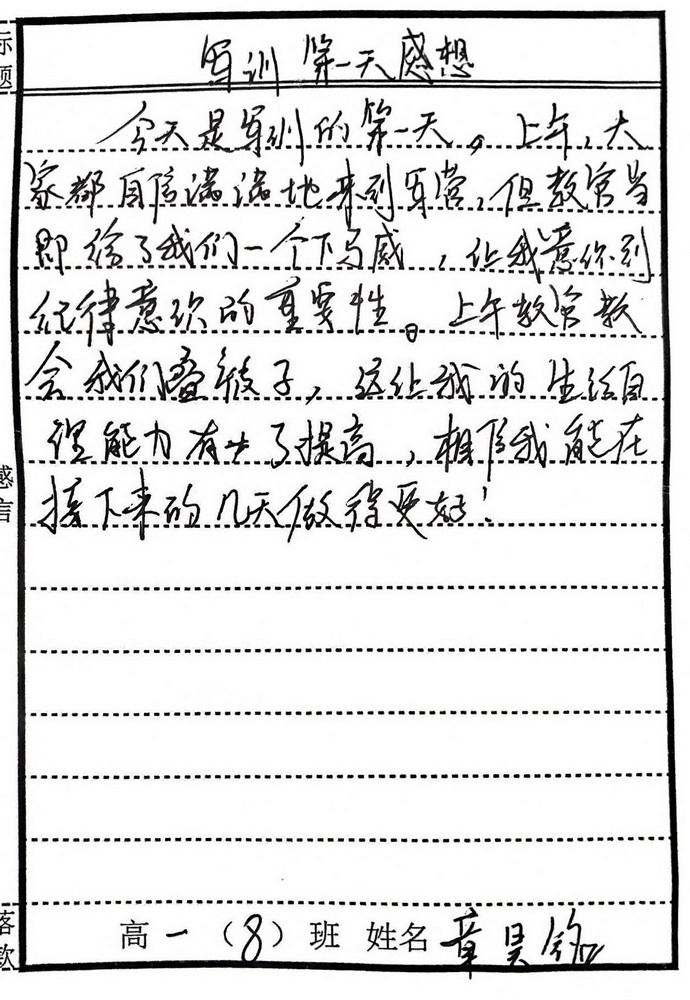 标题
军训第一天感想
今天是军训的第一天。上午,大
家都自信满满地来到军营,但教官当
即给了我们一个下马威,让我意识到
纪律意识的重要性。上午教官教
会我们叠被子,这让我的生活自
理能力有出了提高,相信我能在
接下来的几天做得更好!
感言
落款
高一(8)班 姓名 章昊铭